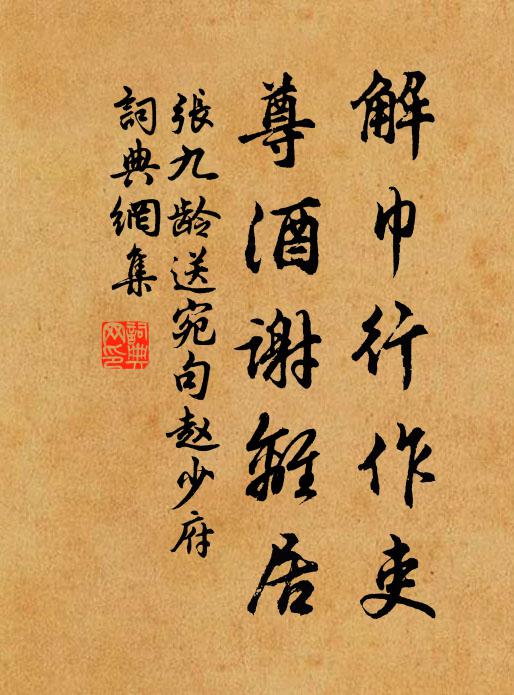 解巾行作吏
尊酒謝離居
張九龄送宛句赵少府
詞典網集
詞典
网印